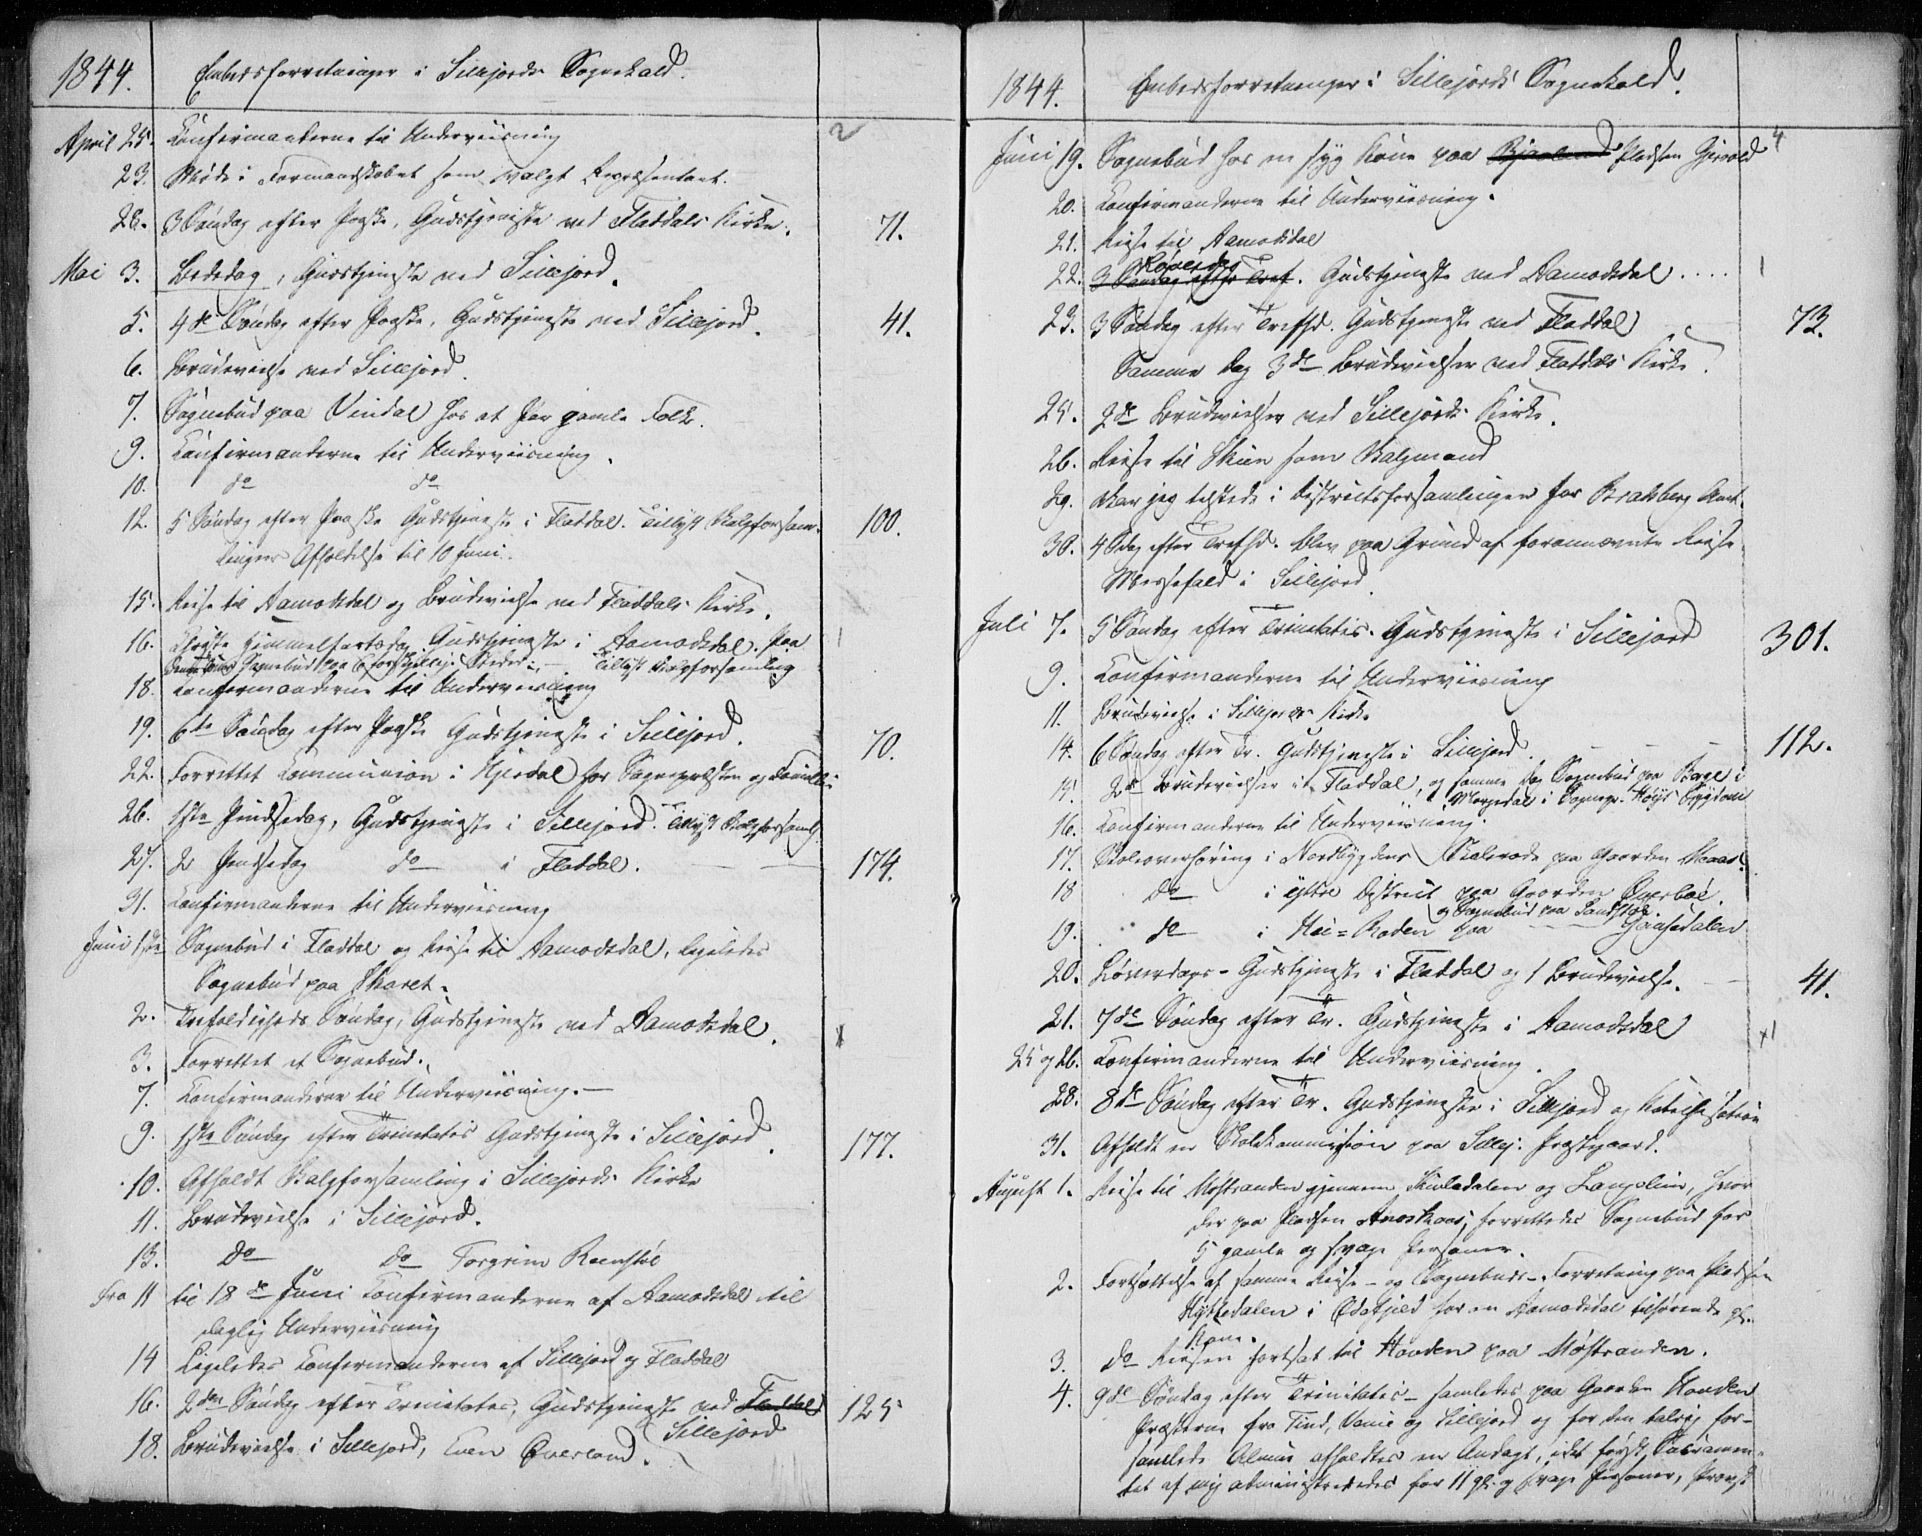 1844. Embedsforretninger i Sillejords Sognekald.
April 25. Confirmanderne til Underviisning
23. Møde i Formandskabet som valgt Repræsentant.
28. 3 Søndag efter Paaske, Gudstjeneste ved Flatdals Kirke. 71.
Mai 3. Bededag, Gudstjeneste ved Sillejord.
5. 4de Søndag efter Paaske, Gudstjeneste ved Sillejord. 41.
6. Brudevielse ved Sillejord.
7. Sognebud paa Vindal hos et Par gamle Folk.
9. Confirmanderne til Underviisning.
10. do do
12. 5 Søndag efter Paaske Gudstjeneste i Flatdal. Tillyst Valgforsam- 100.
lingens Afholdelse til 10 Juni.
15. Reise til Aamodsdal og Brudevielse ved Flatdals Kirke.
16. Christi Himmelfartsdag Gudstjeneste i Aamodsdal. Paa
Sognebud paa 6 forskjellige Steder. Tillyst Valgforsamling
18. Confirmanderne til Underviisning
19. 6te Søndag efter Paaske Gudstjeneste i Sillejord. 70.
22. Forrettet Communion i Hjerdal for Sognepræsten og Familie
26. 1ste Pindsedag, Gudstjeneste i Sillejord. Tillyst Valgforsaml.
27. 2 Pindsedag do i Flatdal. 174.
31. Confirmanderne til Underviisning
Juni 1ste Sognebud i Flatdal og Reise til Aamodsdal, ligeledes
Sognebud paa Skaret.
2. Trefoldigheds Søndag, Gudstjeneste ved Aamodsdal.
3. Forrettet et Sognebud.
7. Confirmanderne til Underviisning.
9. 1ste Søndag efter Trinitatis Gudstjeneste i Sillejord. 177.
10. Afholdt Valgforsamling i Sillejords Kirke
11. Brudevielse i Sillejord.
13. do do Torgrim
Fra 11 til 18de Juni Confirmanderne af Aamodsdal til
daglig Underviisning
14 Ligeledes Confirmanderne af Sillejord og Flatdal
16. 2den Søndag efter Trinitatis, Gudstjeneste ved Flatdal 125
Sillejord
18. Brudevielse i Sillejord, Even Overland.
1844. Embedsforretninger i Sillejords Sognekald.
Juni 19. Sognebud hos en syg Kone paa Pladsen
20. Confirmanderne til Underviisning.
21. Reise til Aamodsdal
Løverdag
22. 3 Søndag efter Tref. Gudstjeneste ved Aamodsdal.... 1
23. 3 Søndag efter Trefhd. Gudstjeneste ved Flatdal 73.
Samme Dag 3de Brudevielser ved Flatdals Kirke.
25. 2de Brudevielser ved Sillejords Kirke.
26. Reise til Skien som Valgmand
29. Var jeg tilstede i Districtsforsamlingen for Bratsberg Amt.
30. 4 Sdag efter Trefhd. blev paa Grund af forannævnte Reise
Messefald i Sillejord
Juli 7. 5 Søndag efter Trinitatis. Gudstjeneste i Sillejord 301.
9. Confirmanderne til Underviisning
11. Brudevielse i Sillejords Kirke
14. 6 Søndag efter Tr. Gudstjeneste i Sillejord. 112.
15. 2de Brudevielser i Flatdal, og samme Dag Sognebud paa Berge i
Morgedal i
16. Confirmanderne til Underviisning.
17. Skoleoverhøring i Nordbygdens Skolerode paa Gaarden
18 do i ytre District paa Gaarden Overboe.
og Sognebud paa
19. do i Hei-Roden paa Gaasedalen
20. Løverdags-Gudstjeneste i Flatdal og 1 Brudevielse. 41.
21. 7de Søndag efter Tr. Gudstjeneste i Aamodsdal
25 og 26. Confirmanderne til Underviisning.
28. 8de Søndag efter Tr. Gudstjeneste i Sillejord og Katechisation
31. Afholdt en Skolekommission paa Sillej. Præstegaard.
August 1. Reise til Møstranden gjennem og hvor
der paa Pladsen forrettedes Sognebud for
5 gamle og svage Personer.
2. Fortsættelse af samme Reise - og Sognebuds-Forretning paa Pladsen
i for en Aamodsdal tilhørende gl.
Kone.
3. do Reisen fortsat til Hovden paa Møstranden.
4. 9de Søndag efter Trinitatis - samledes paa Gaarden Hovden
Præsterne fra Tind, Vinie og Sillejord og for den talrig for-
samlede Almue afholdtes en Andagt, idet først Sacramen-
tet af mig administreredes for 11 gl. og svage Personer, Provst